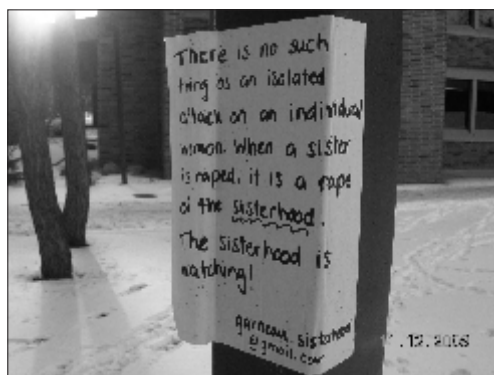 There is no such
thing as an isolated
attack on an individual
woman. When a sister
is raped, it is a rape
of the sisterhood.
The sisterhood is
watching!
garneau.sisterhood
@gmail.com
.12.2005